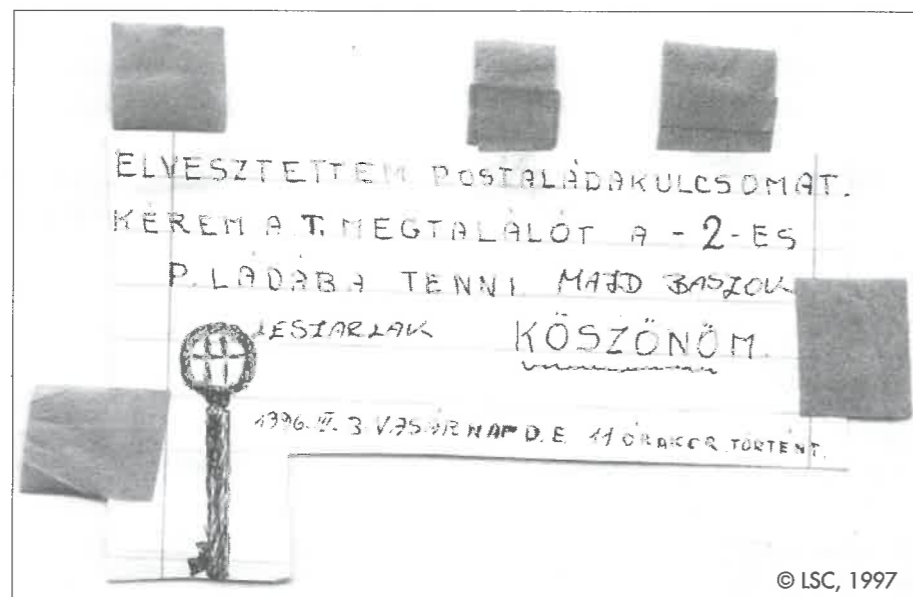 ELVESZTETTEM POSTALÁDAKULCSOMAT.
KÉREM A T. MEGTALÁLÓT A -2-ES
P. LÁDÁBA TENNI. MAJD BASZOK
LESZARLAK KÖSZÖNÖM.
1996. 3 VASÁRNAP D.E. 11 ÓRAKER TÖRTÉNT.
© LSC, 1997